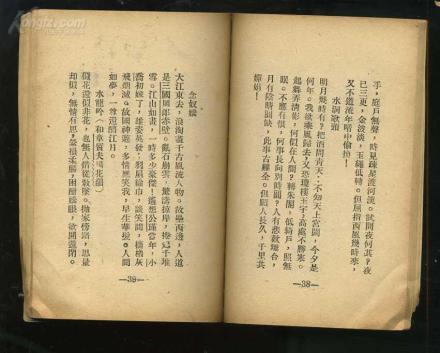 手，庭戶無聲，時見疎星渡河漢。試問夜何其？夜
已三更，金波淡，玉繩低轉。但屈指西風幾時來，
又不道流年暗中偷換！
水調歌頭
明月幾時有？把酒問青天：不知天上宮闕，今夕是
何年。我欲乘風歸去，又恐瓊樓玉宇，高處不勝寒。
起舞弄清影，何似在人間？轉朱閣，低綺戶，照無
眠。不應有恨，何事長向別時圓？人有悲歡離合，
月有陰晴圓缺，此事古難全。但願人長久，千里共
嬋娟！
—38—
念奴嬌
大江東去，浪淘盡千古風流人物。故壘西邊，人道
是三國周郎赤壁。亂石崩雲，驚濤掠岸，捲起千堆
雪。江山如畫，一時多少豪傑！遙想公瑾當年，小
喬初嫁了，雄姿英發；羽扇綸巾，談笑間，檣櫓灰
飛煙滅。故國神遊，多情應笑我，早生華髮。人間
如夢，一尊還酹江月。
水龍吟（和章質夫楊花韻）
似花還似非花，也無人惜從教墜。拋家傍路，思量
却似，無情有思。縈損柔腸，困酣嬌眼，欲開還閉。